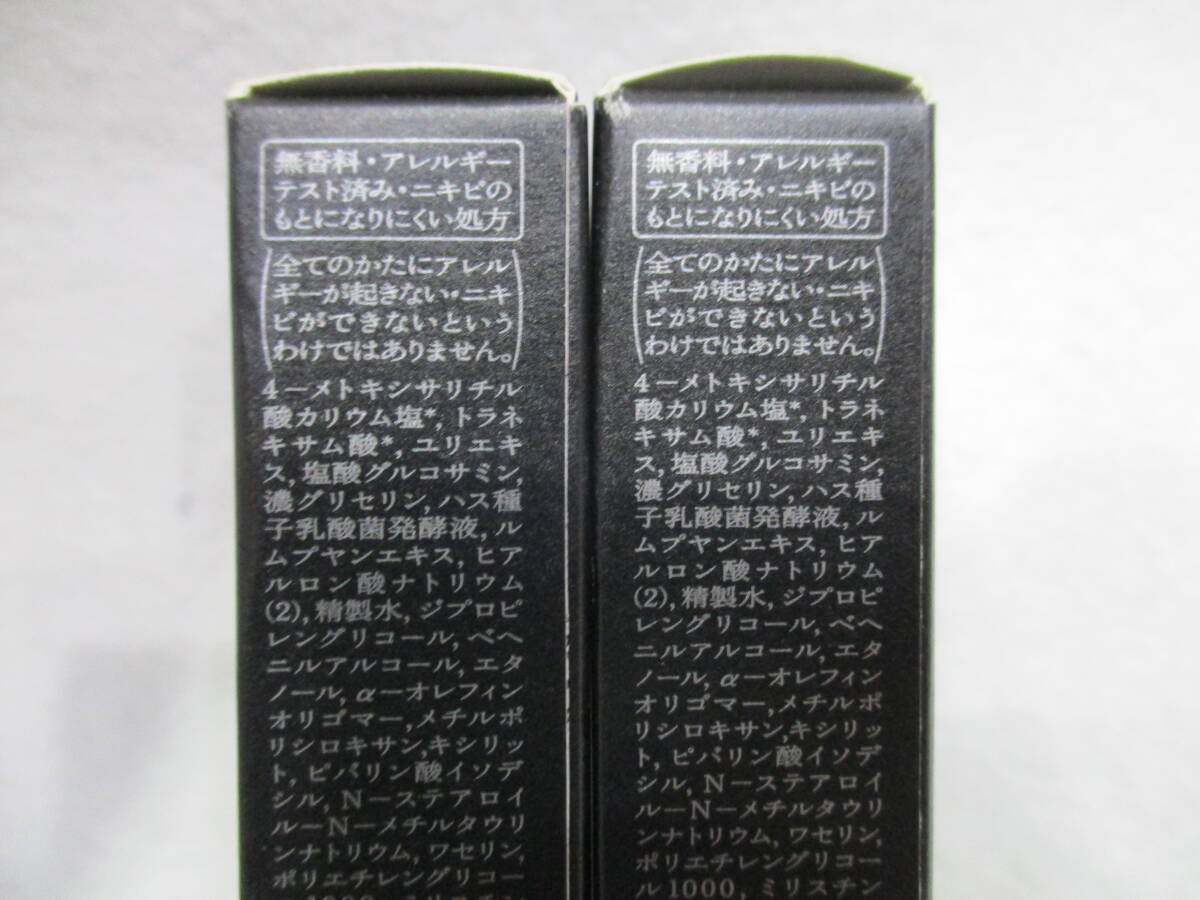 無香料・アレルギー
テスト済み・ニキビの
もとになりにくい処方
(全てのかたにアレル
ギーが起きない・ニキ
ビができないという
わけではありません。)
4ーメトキシサリチル
酸カリウム塩*, トラネ
キサム酸*, ユリエキ
ス, 塩酸グルコサミン,
濃グリセリン, ハス種
子乳酸菌発酵液, ル
ムプヤンエキス, ヒア
ルロン酸ナトリウム
(2), 精製水, ジプロピ
レングリコール, ベヘ
ニルアルコール, エタ
ノール, αーオレフィン
オリゴマー, メチルポ
リシロキサン, キシリッ
ト, ピバリン酸イソデ
シル, Nーステアロイ
ルーNーメチルタウリ
ンナトリウム, ワセリン,
ポリエチレングリコー
無香料・アレルギー
テスト済み・ニキビの
もとになりにくい処方
(全てのかたにアレル
ギーが起きない・ニキ
ビができないという
わけではありません。)
4ーメトキシサリチル
酸カリウム塩*, トラネ
キサム酸*, ユリエキ
ス, 塩酸グルコサミン,
濃グリセリン, ハス種
子乳酸菌発酵液, ル
ムプヤンエキス, ヒア
ルロン酸ナトリウム
(2), 精製水, ジプロピ
レングリコール, ベヘ
ニルアルコール, エタ
ノール, αーオレフィン
オリゴマー, メチルポ
リシロキサン, キシリッ
ト, ピバリン酸イソデ
シル, Nーステアロイ
ルーNーメチルタウリ
ンナトリウム, ワセリン,
ポリエチレングリコー
ル1000, ミリスチン